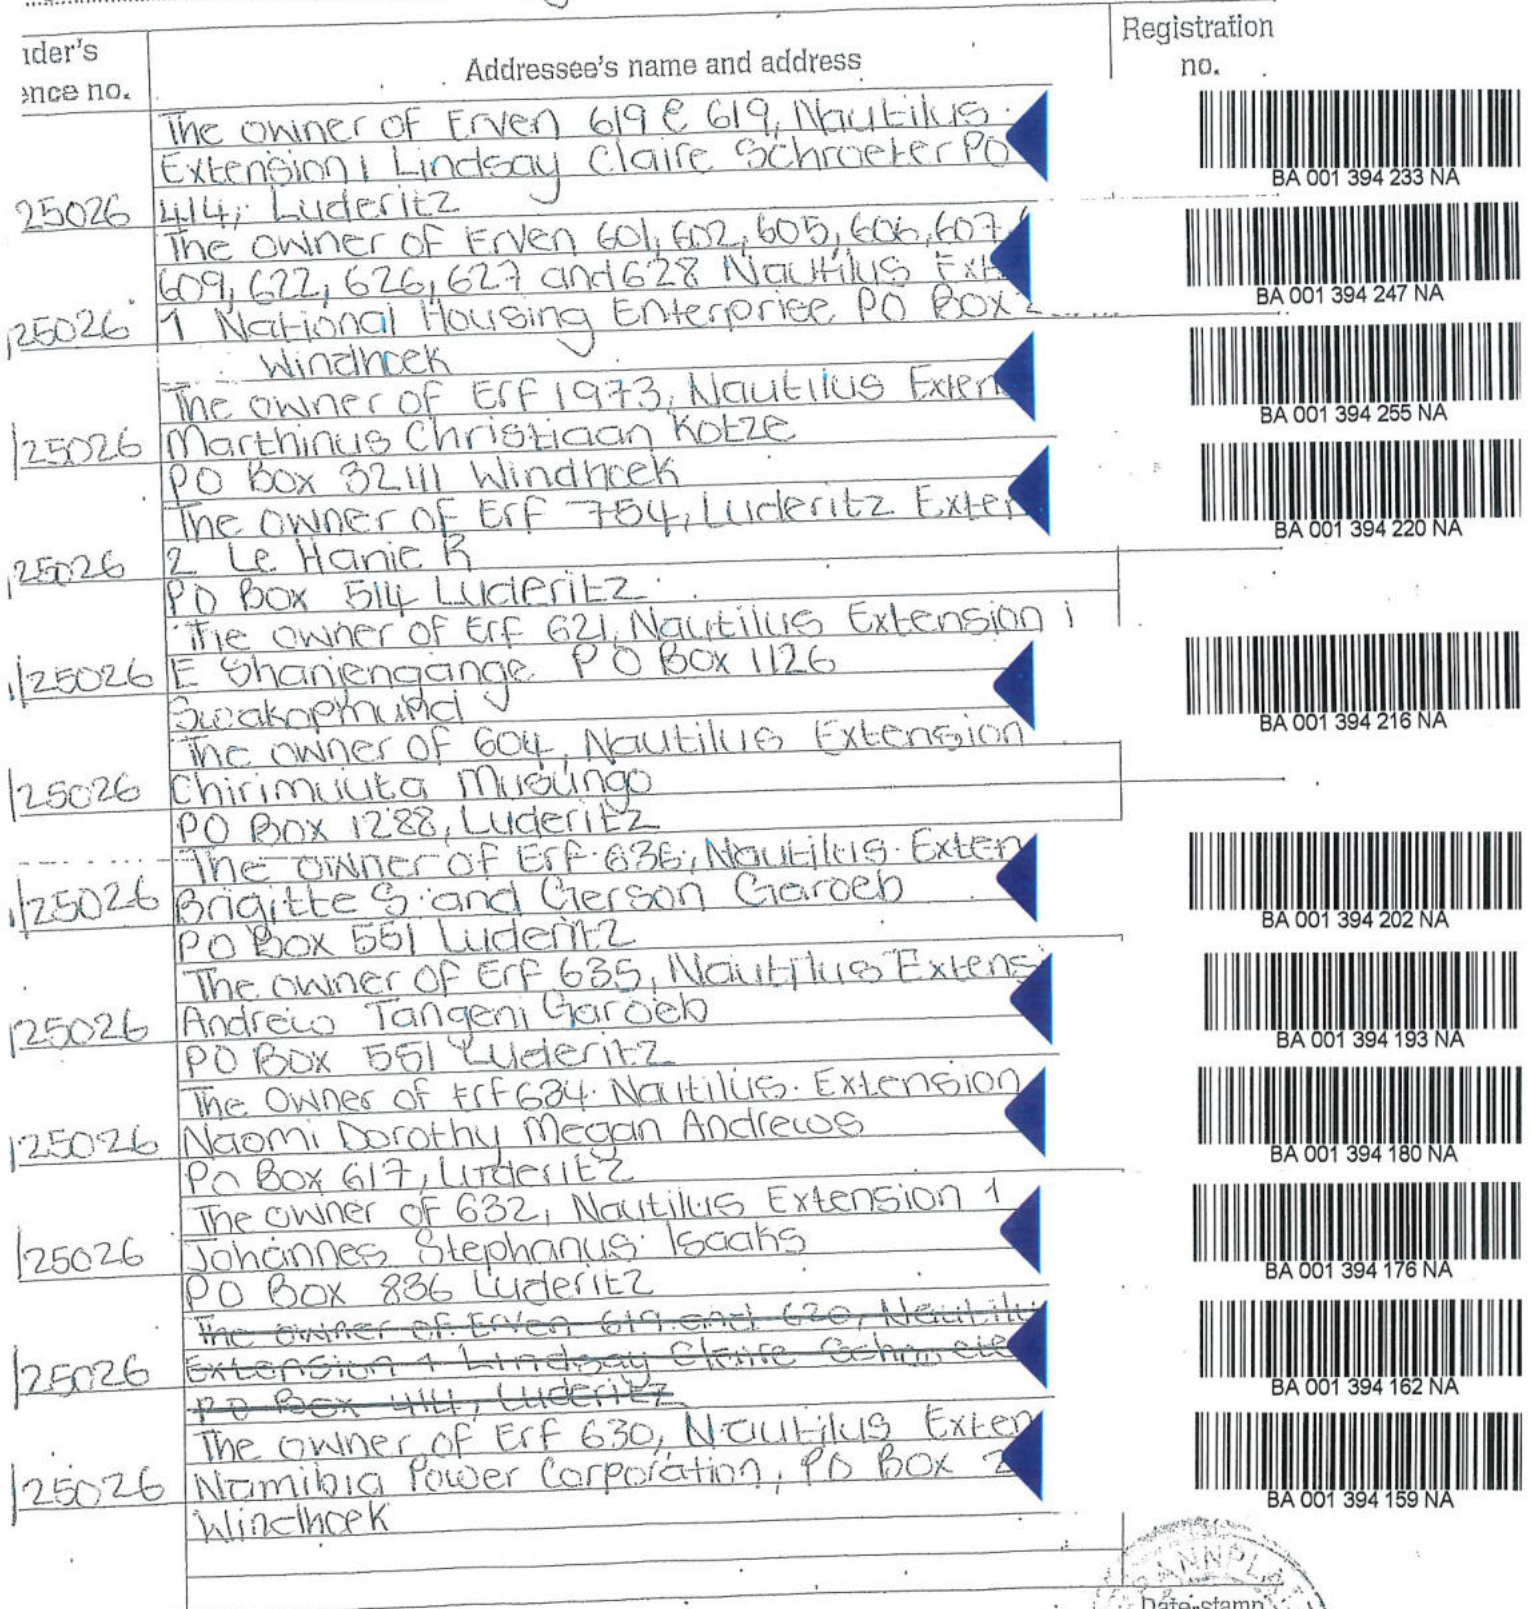 Registration
no.
Addressee's name and address
The owner of Erven 619 & 619, Nautilus
Extension 1 Lindsay Claire Schroeter PO
25026 414, Luderitz
BA 001 394 233 NA
The owner of Erven 601, 602, 605, 606, 607,
609, 622, 626, 627 and 628 Nautilus Ext
25026 1 National Housing Enterprise PO Box 2
Windhoek
BA 001 394 247 NA
The owner of Erf 1973, Nautilus Exten
25026 Marthinus Christiaan Kotze
PO Box 32111 Windhoek
BA 001 394 255 NA
The owner of Erf 754, Luderitz Exten
25026 2 Le Hanie R
PO Box 514 Luderitz
BA 001 394 220 NA
The owner of Erf 621, Nautilus Extension 1
25026 E Shanjengange PO Box 1126
Swakopmund
BA 001 394 216 NA
The owner of 604, Nautilus Extension
25026 Chirimuuta Musungo
PO Box 1288, Luderitz
The owner of Erf 636, Nautilus Exten
25026 Brigitte S and Gerson Garoeb
PO Box 551 Luderitz
BA 001 394 202 NA
The owner of Erf 635, Nautilus Extensi
25026 Andrew Tangeni Garoeb
PO Box 551 Luderitz
BA 001 394 193 NA
The Owner of Erf 634 Nautilus Extension
25026 Naomi Dorothy Megan Andrews
PO Box 617, Luderitz
BA 001 394 180 NA
The owner of 632, Nautilus Extension 1
25026 Johannes Stephanus Isaaks
PO Box 836 Luderitz
BA 001 394 176 NA
The owner of Erven 619 and 620, Nautilu
25026 Extension 1 Lindsay Claire Schroete
PO Box 414, Luderitz
BA 001 394 162 NA
The owner of Erf 630, Nautilus Exten
25026 Namibia Power Corporation, PO Box 2
Windhoek
BA 001 394 159 NA
Date-stamp